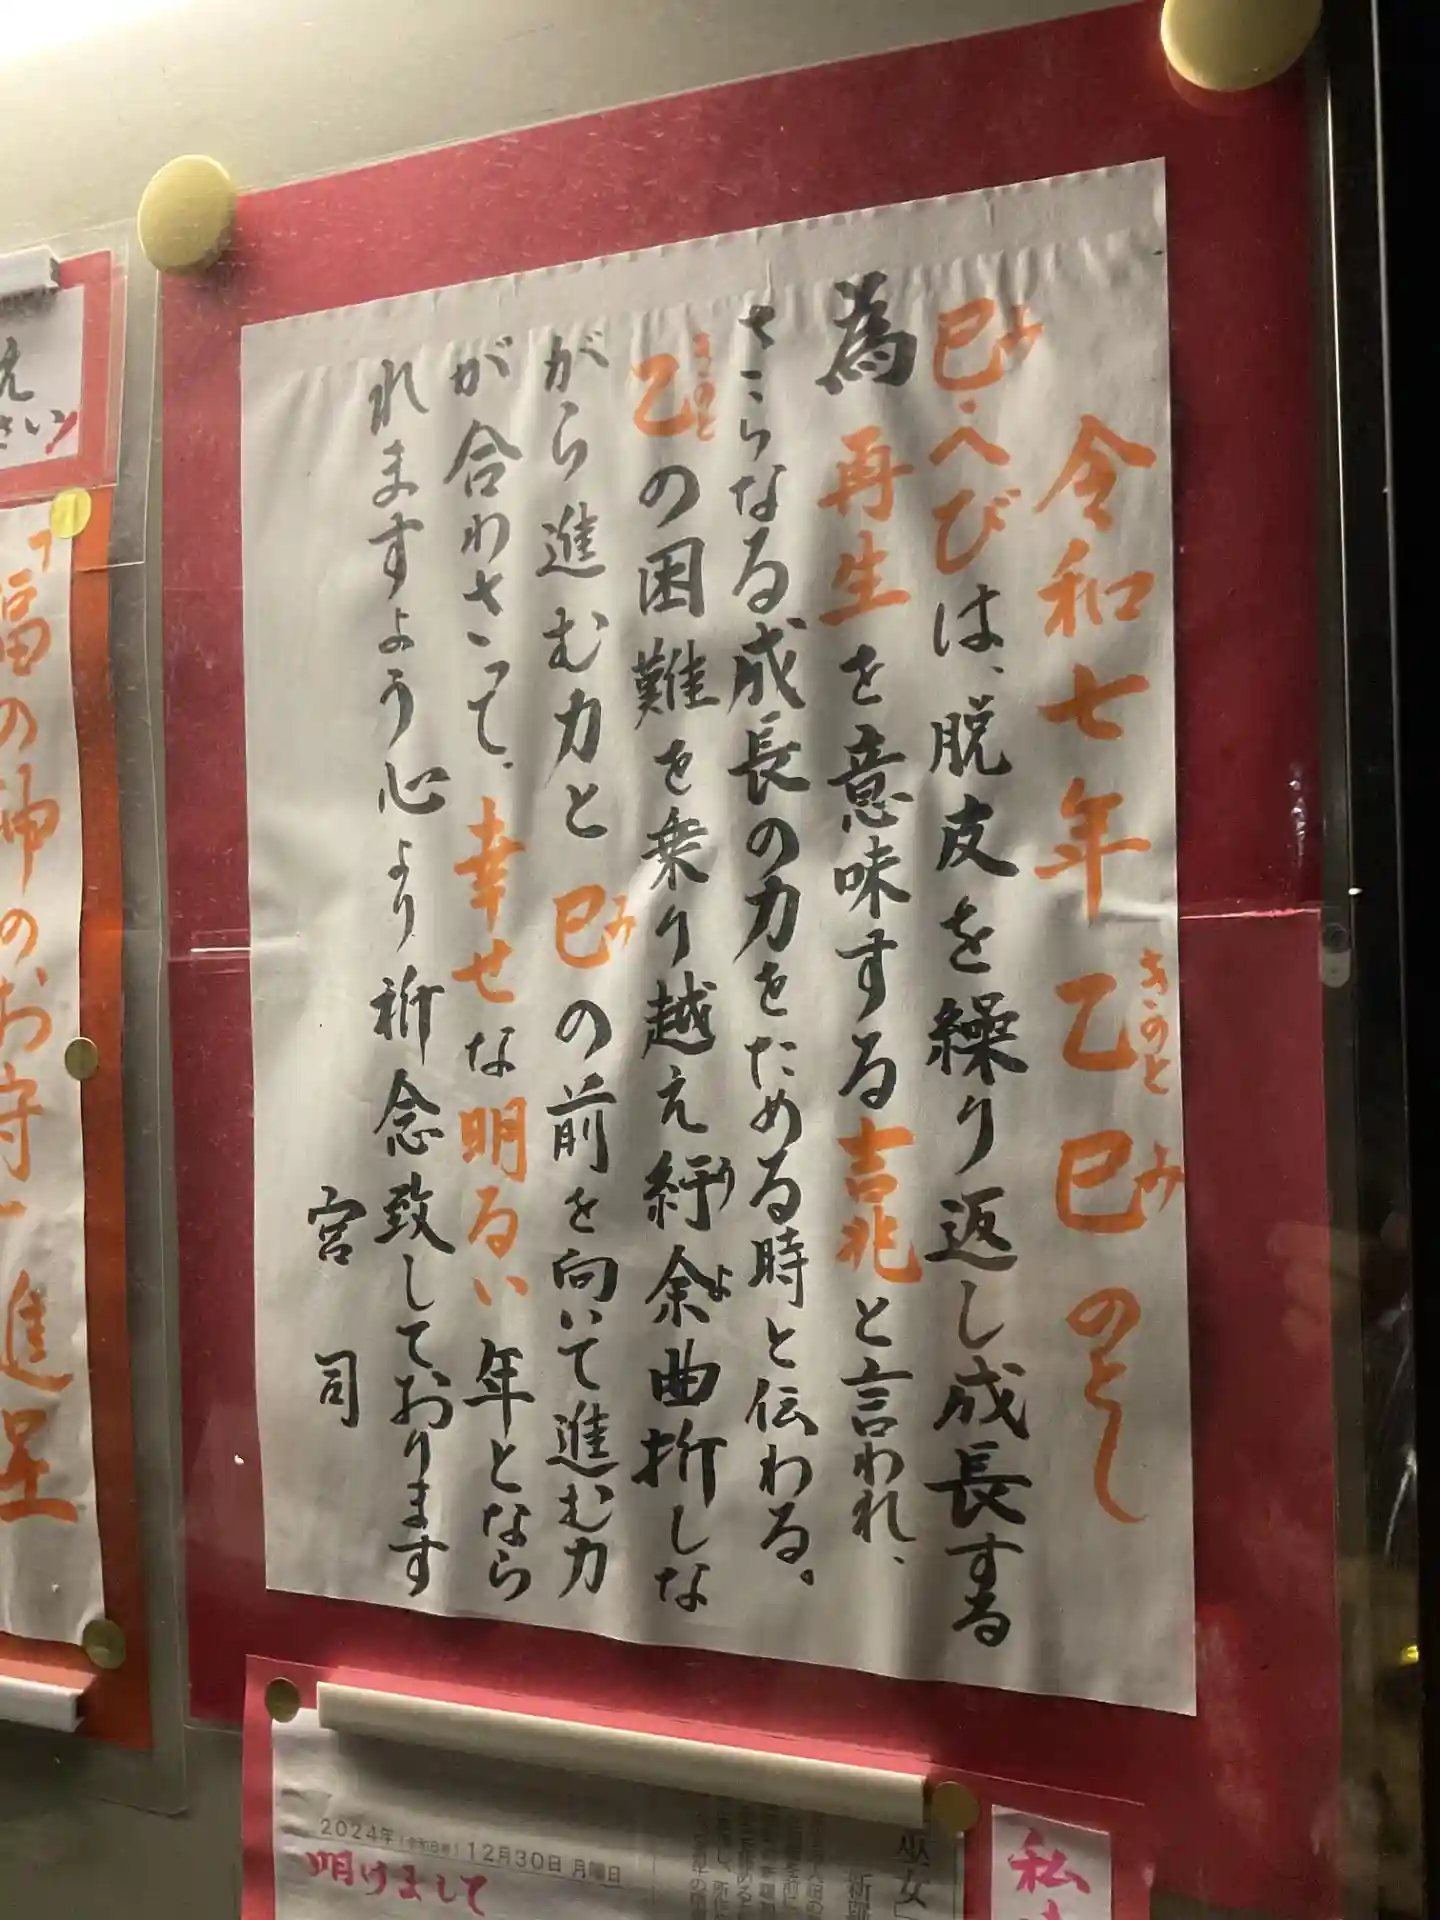 令和七年 乙巳のとし
きのと
み
巳・へびは、脱皮を繰り返し成長する
み
為 再生を意味する吉兆と言われ、
さらなる成長の力をためる時と伝わる。
乙の困難を乗り越え紆余曲折しな
きのと
う
よ
がら進む力と 巳の前を向いて進む力
み
が合わさって、幸せな明るい 年となら
れますよう心より祈念致しております
宮司
え
さい!
「福の神のお守」進呈
2024年(令和6年)12月30日 月曜日
明けまして
巫女」
私